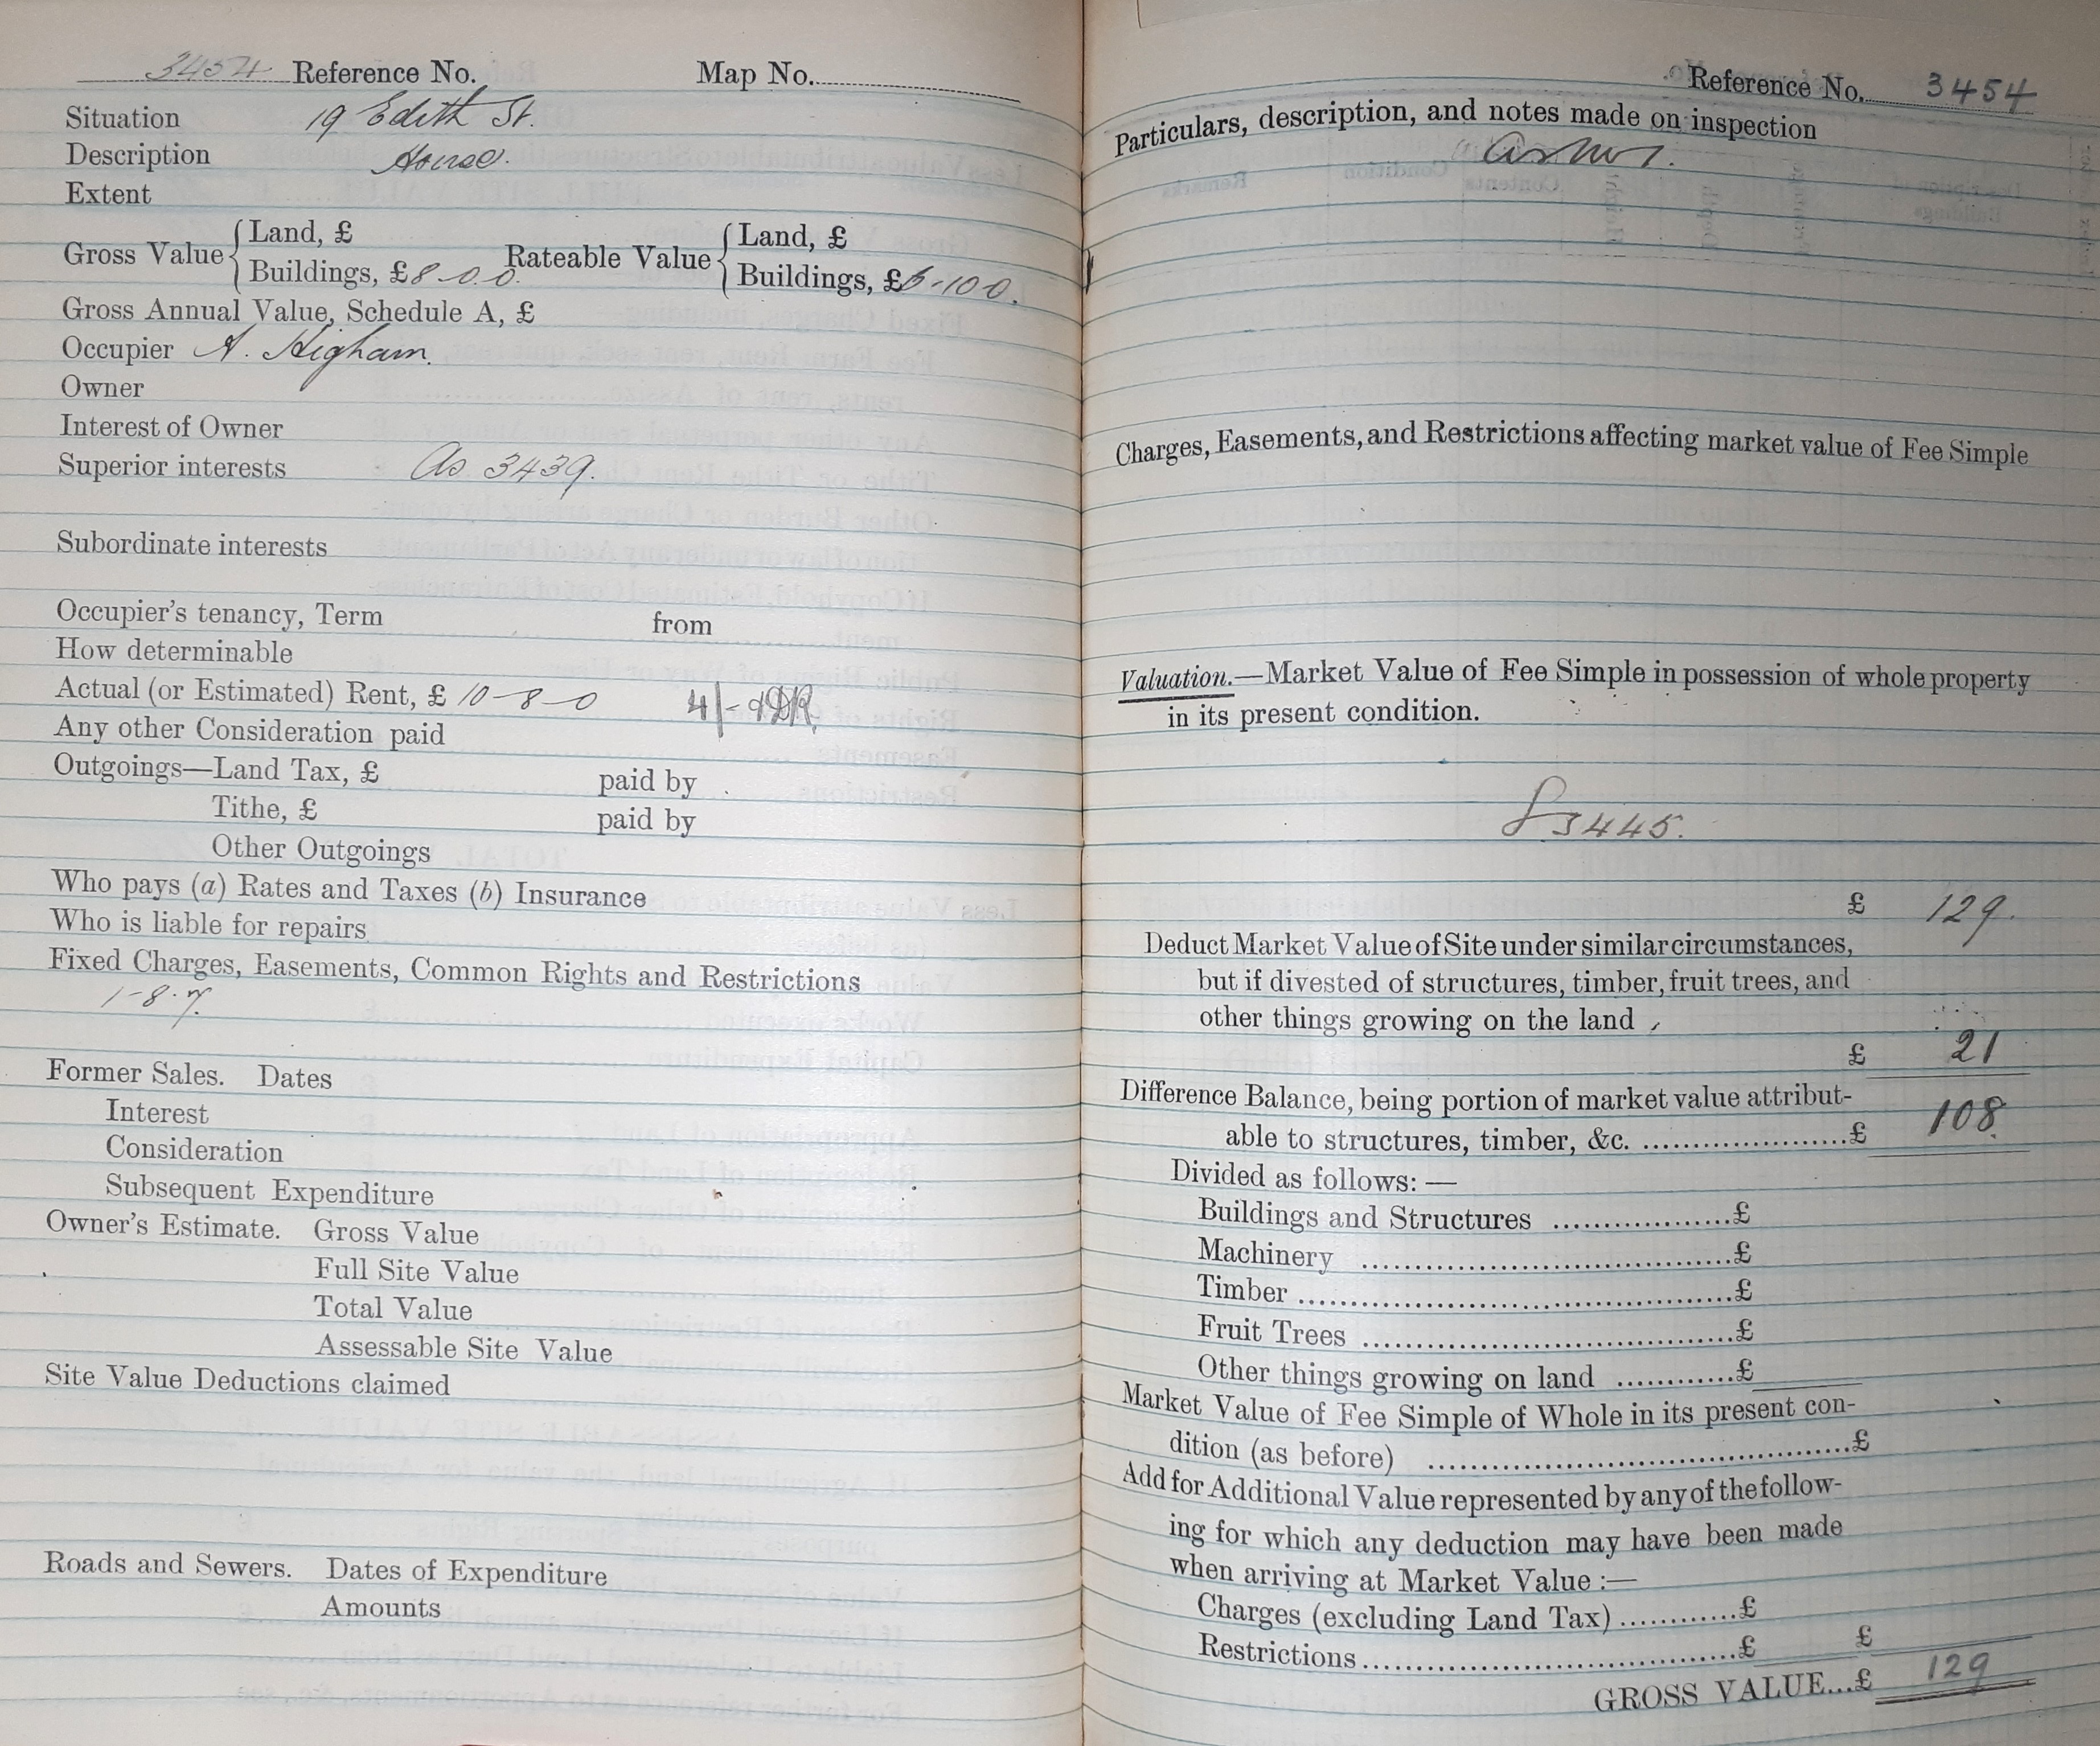 3454 Reference No. Map No.
Situation 19 Edith St.
Description House.
Extent
Gross Value { Land, £
Buildings, £8-0-0. Rateable Value { Land, £
Buildings, £6-10-0.
Gross Annual Value, Schedule A, £
Occupier A. Higham.
Owner
Interest of Owner
Superior interests As 3439.
Subordinate interests
Occupier's tenancy, Term from
How determinable
Actual (or Estimated) Rent, £ 10-8-0 4/-
Any other Consideration paid
Outgoings—Land Tax, £ paid by
Tithe, £ paid by
Other Outgoings
Who pays (a) Rates and Taxes (b) Insurance
Who is liable for repairs
Fixed Charges, Easements, Common Rights and Restrictions
1-8-7.
Former Sales. Dates
Interest
Consideration
Subsequent Expenditure
Owner's Estimate. Gross Value
Full Site Value
Total Value
Assessable Site Value
Site Value Deductions claimed
Roads and Sewers. Dates of Expenditure
Amounts
Reference No. 3454
Particulars, description, and notes made on inspection
Charges, Easements, and Restrictions affecting market value of Fee Simple
Valuation.—Market Value of Fee Simple in possession of whole property
in its present condition.
3445.
£ 129.
Deduct Market Value of Site under similar circumstances,
but if divested of structures, timber, fruit trees, and
other things growing on the land
£ 21
Difference Balance, being portion of market value attribut-
able to structures, timber, &c. ......................£ 108.
Divided as follows:—
Buildings and Structures ...................£
Machinery ......................................£
Timber .............................................£
Fruit Trees ......................................£
Other things growing on land ............£
Market Value of Fee Simple of Whole in its present con-
dition (as before) ............................................£
Add for Additional Value represented by any of the follow-
ing for which any deduction may have been made
when arriving at Market Value :—
Charges (excluding Land Tax) ............£
Restrictions.......................................£ £
GROSS VALUE...£ 129